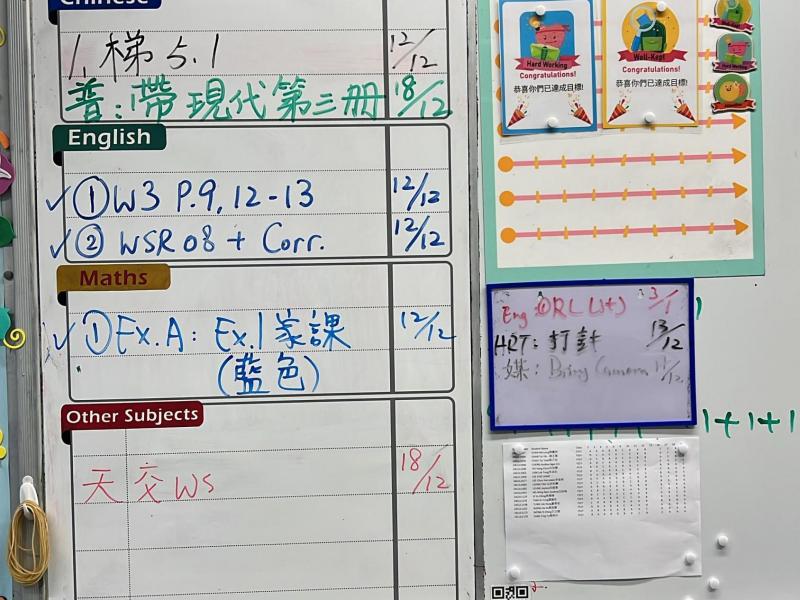 Chinese
1. 梯 5.1 12/12
普:帶現代第三冊 18/12
English
✓ ① W3 P.9, 12-13 12/12
✓ ② WSR 08 + Corr. 12/12
Maths
✓ ① Ex.A: Ex.1 家課 12/12
(藍色)
Other Subjects
天交 WS 18/12
Hard Working
Congratulations!
恭喜你們已達成目標!
Well-Kept
Congratulations!
恭喜你們已達成目標!
Hard Working
Eng: ① RL 3/1
HRT: 打針 13/12
Bring Camera 11/12
1+1+1